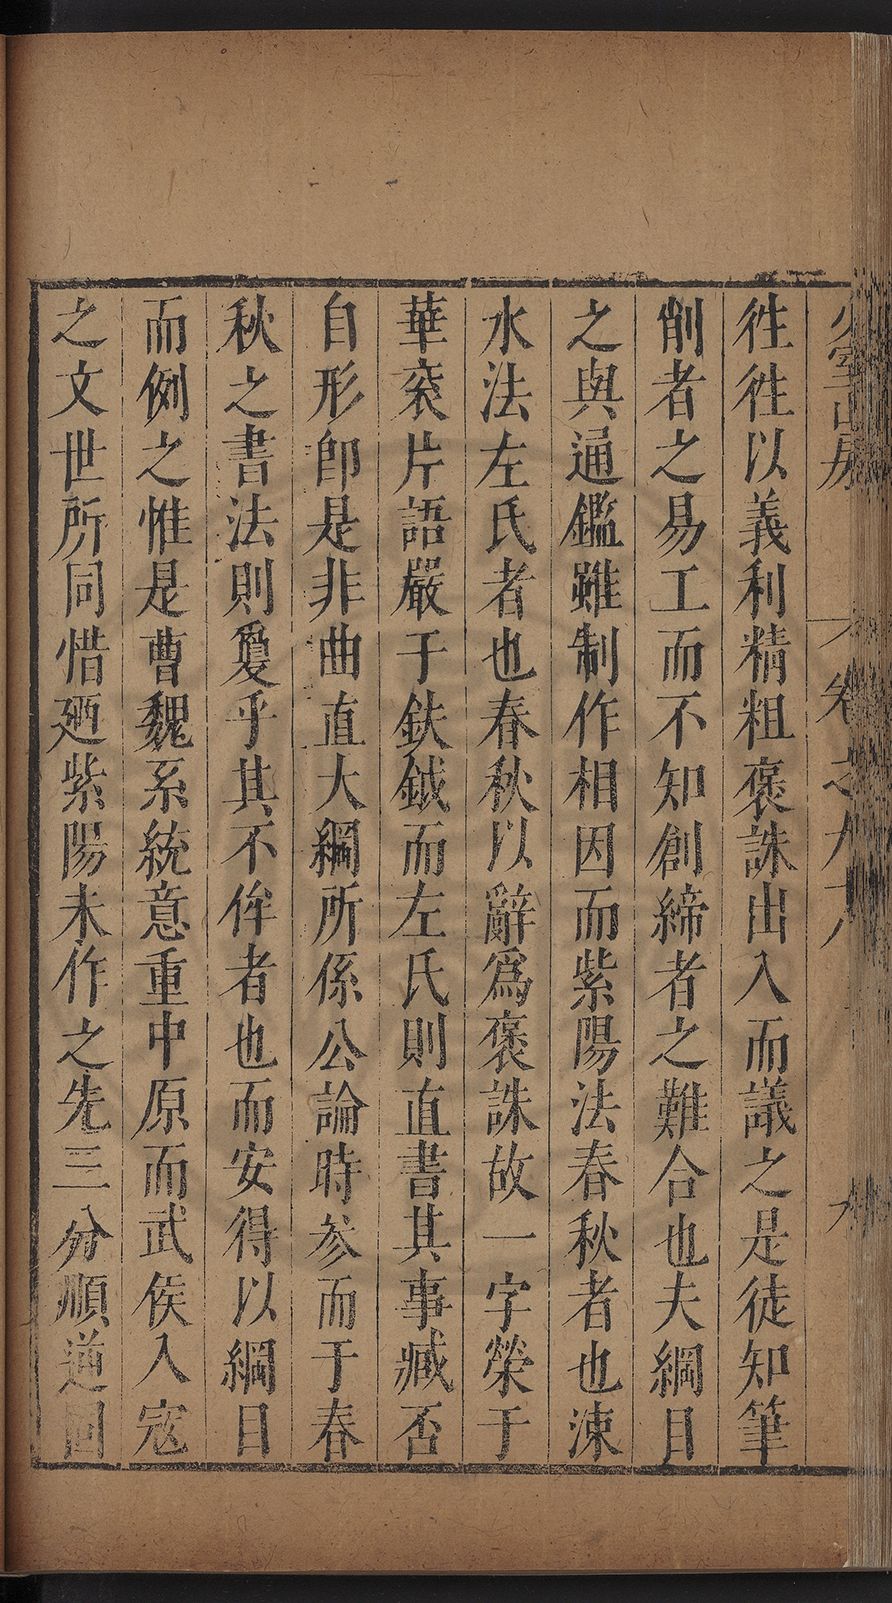 少室山房
卷之九十八
九
徃徃以義利精粗褒誅出入而議之是徒知筆
削者之易工而不知創締者之難合也夫綱目
之與通鑑雖制作相因而紫陽法春秋者也涑
水法左氏者也春秋以辭爲褒誅故一字榮于
華衮片語嚴于鈇鉞而左氏則直書其事臧否
自形卽是非曲直大綱所係公論時參而于春
秋之書法則敻乎其不侔者也而安得以綱目
而例之惟是曹魏系統意重中原而武侯入宼
之文世所同惜廼紫陽未作之先三分順逆固